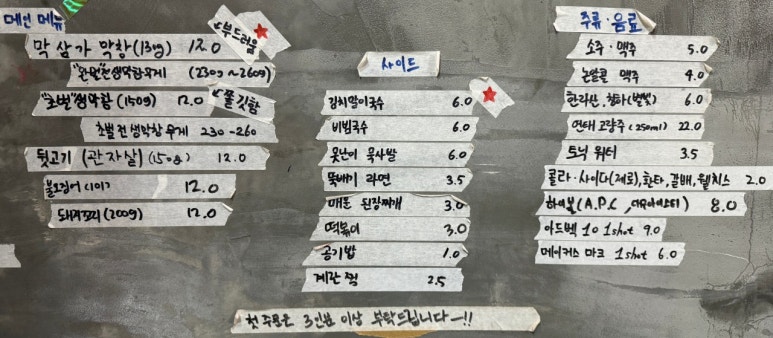 메인 메뉴
막 삼가 막창 (130g) 12.0
부드러움
"완벌"전 생막창 무게 (230g~260g)
"초벌"생막창 (150g) 12.0
쫄깃함
초벌 전 생막창 무게 230-260
뒷고기 (관자살) (150g) 12.0
불오징어 (1미) 12.0
돼지꼬리 (200g) 12.0
사이드
김치말이국수 6.0
비빔국수 6.0
못난이 묵사발 6.0
뚝배기 라면 3.5
매운 된장찌개 3.0
떡볶이 3.0
공기밥 1.0
계란찜 2.5
주류·음료
소주·맥주 5.0
논알콜 맥주 4.0
한라산, 청하(별빛) 6.0
연태 고량주 (250ml) 22.0
토닉 워터 3.5
콜라·사이다(제로), 환타, 갈배, 웰치스 2.0
하이볼 (A.P.C, 8.0
아드벡 10 1shot 9.0
메이커스 마크 1shot 6.0
첫 주문은 3인분 이상 부탁드립니다-!!